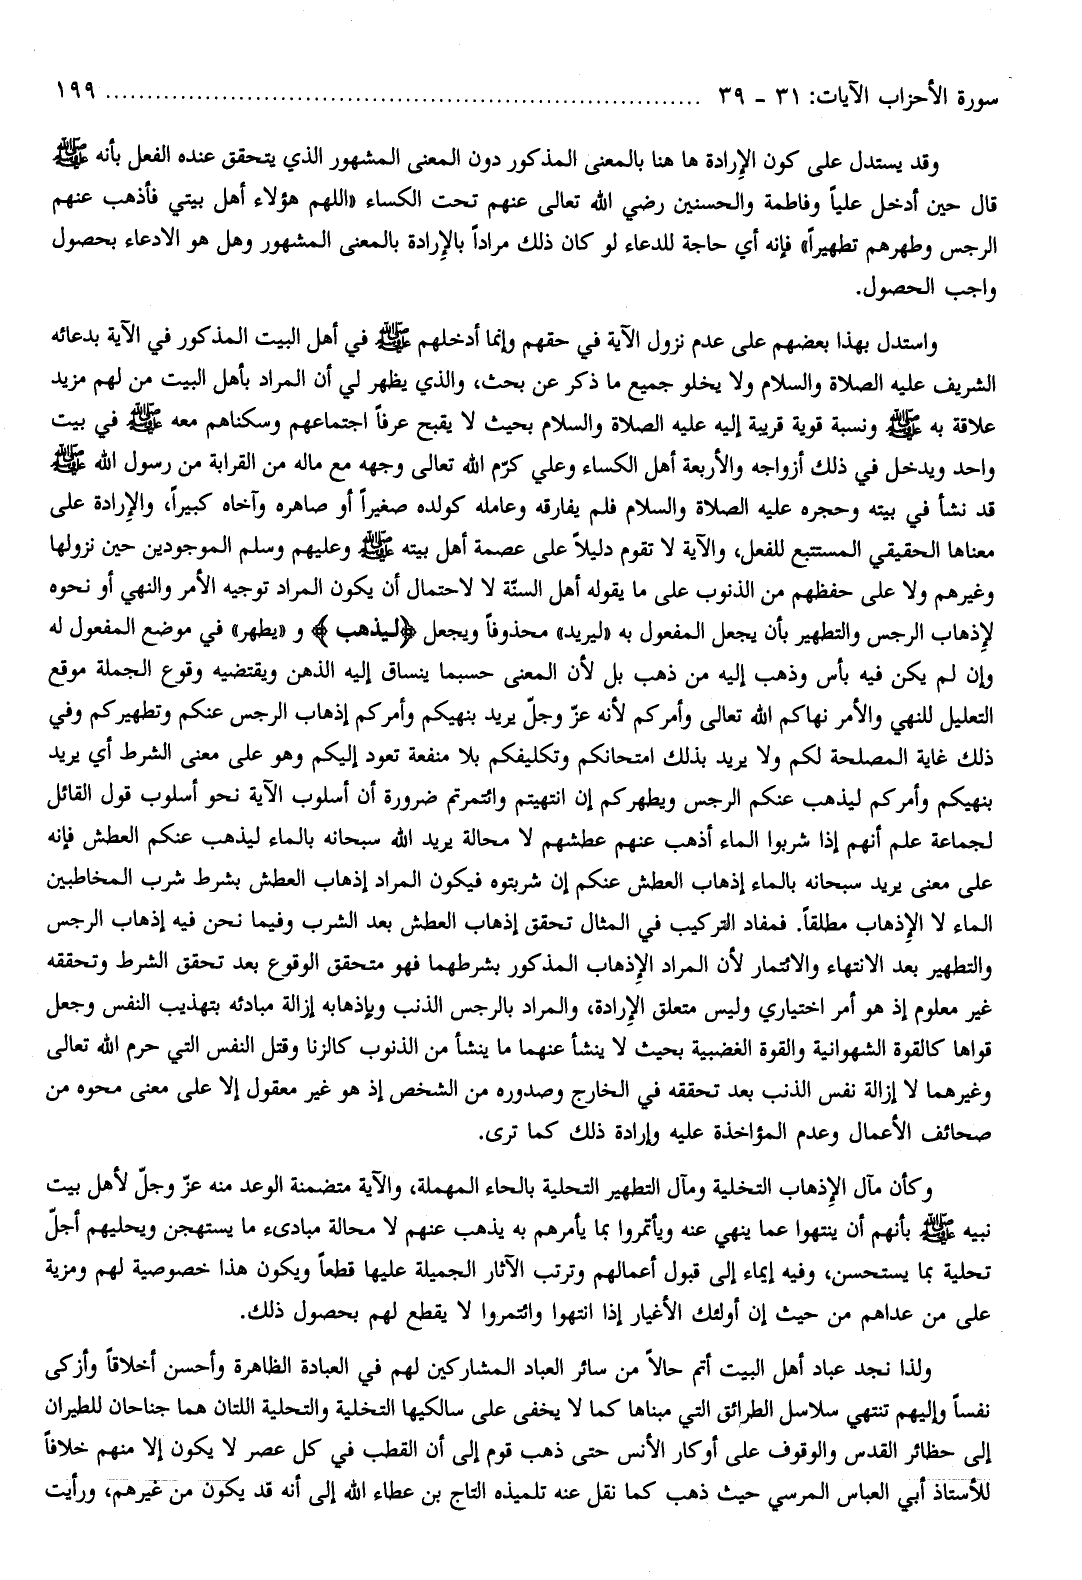 سورة الأحزاب الآيات: ٣١ - ٣٩ ........................................................................ ١٩٩
وقد يستدل على كون الإرادة ها هنا بالمعنى المذكور دون المعنى المشهور الذي يتحقق عنده الفعل بأنه ﷺ
قال حين أدخل علياً وفاطمة والحسنين رضي الله تعالى عنهم تحت الكساء «اللهم هؤلاء أهل بيتي فأذهب عنهم
الرجس وطهرهم تطهيراً» فإنه أي حاجة للدعاء لو كان ذلك مراداً بالإرادة بالمعنى المشهور وهل هو الادعاء بحصول
واجب الحصول.
واستدل بهذا بعضهم على عدم نزول الآية في حقهم وإنما أدخلهم ﷺ في أهل البيت المذكور في الآية بدعائه
الشريف عليه الصلاة والسلام ولا يخلو جميع ما ذكر عن بحث، والذي يظهر لي أن المراد بأهل البيت من لهم مزيد
علاقة به ﷺ ونسبة قوية قريبة إليه عليه الصلاة والسلام بحيث لا يقبح عرفاً اجتماعهم وسكناهم معه ﷺ في بيت
واحد ويدخل في ذلك أزواجه والأربعة أهل الكساء وعلي كرّم الله تعالى وجهه مع ماله من القرابة من رسول الله ﷺ
قد نشأ في بيته وحجره عليه الصلاة والسلام فلم يفارقه وعامله كولده صغيراً أو صاهره وآخاه كبيراً، والإرادة على
معناها الحقيقي المستتبع للفعل، والآية لا تقوم دليلاً على عصمة أهل بيته ﷺ وعليهم وسلم الموجودين حين نزولها
وغيرهم ولا على حفظهم من الذنوب على ما يقوله أهل السنّة لا لاحتمال أن يكون المراد توجيه الأمر والنهي أو نحوه
لإذهاب الرجس والتطهير بأن يجعل المفعول به «ليريد» محذوفاً ويجعل ﴿ليذهب﴾ و «يطهر» في موضع المفعول له
وإن لم يكن فيه بأس وذهب إليه من ذهب بل لأن المعنى حسبما ينساق إليه الذهن ويقتضيه وقوع الجملة موقع
التعليل للنهي والأمر نهاكم الله تعالى وأمركم لأنه عزّ وجلّ يريد بنهيكم وأمركم إذهاب الرجس عنكم وتطهيركم وفي
ذلك غاية المصلحة لكم ولا يريد بذلك امتحانكم وتكليفكم بلا منفعة تعود إليكم وهو على معنى الشرط أي يريد
بنهيكم وأمركم ليذهب عنكم الرجس ويطهركم إن انتهيتم وائتمرتم ضرورة أن أسلوب الآية نحو أسلوب قول القائل
لجماعة علم أنهم إذا شربوا الماء أذهب عنهم عطشهم لا محالة يريد الله سبحانه بالماء ليذهب عنكم العطش فإنه
على معنى يريد سبحانه بالماء إذهاب العطش عنكم إن شربتوه فيكون المراد إذهاب العطش بشرط شرب المخاطبين
الماء لا الإذهاب مطلقاً. فمفاد التركيب في المثال تحقق إذهاب العطش بعد الشرب وفيما نحن فيه إذهاب الرجس
والتطهير بعد الانتهاء والائتمار لأن المراد الإذهاب المذكور بشرطهما فهو متحقق الوقوع بعد تحقق الشرط وتحققه
غير معلوم إذ هو أمر اختياري وليس متعلق الإرادة، والمراد بالرجس الذنب وبإذهابه إزالة مبادئه بتهذيب النفس وجعل
قواها كالقوة الشهوانية والقوة الغضبية بحيث لا ينشأ عنهما ما ينشأ من الذنوب كالزنا وقتل النفس التي حرم الله تعالى
وغيرهما لا إزالة نفس الذنب بعد تحققه في الخارج وصدوره من الشخص إذ هو غير معقول إلا على معنى محوه من
صحائف الأعمال وعدم المؤاخذة عليه وإرادة ذلك كما ترى.
وكأن مآل الإذهاب التخلية ومآل التطهير التحلية بالحاء المهملة، والآية متضمنة الوعد منه عزّ وجلّ لأهل بيت
نبيه ﷺ بأنهم أن ينتهوا عما ينهي عنه ويأتمروا بما يأمرهم به يذهب عنهم لا محالة مبادىء ما يستهجن ويحليهم أجلّ
تحلية بما يستحسن، وفيه إيماء إلى قبول أعمالهم وترتب الآثار الجميلة عليها قطعاً ويكون هذا خصوصية لهم ومزية
على من عداهم من حيث إن أولئك الأغيار إذا انتهوا وائتمروا لا يقطع لهم بحصول ذلك.
ولذا نجد عباد أهل البيت أتم حالاً من سائر العباد المشاركين لهم في العبادة الظاهرة وأحسن أخلاقاً وأزكى
نفساً وإليهم تنتهي سلاسل الطرائق التي مبناها كما لا يخفى على سالكيها التخلية والتحلية اللتان هما جناحان للطيران
إلى حظائر القدس والوقوف على أوكار الأنس حتى ذهب قوم إلى أن القطب في كل عصر لا يكون إلا منهم خلافاً
للأستاذ أبي العباس المرسي حيث ذهب كما نقل عنه تلميذه التاج بن عطاء الله إلى أنه قد يكون من غيرهم، ورأيت